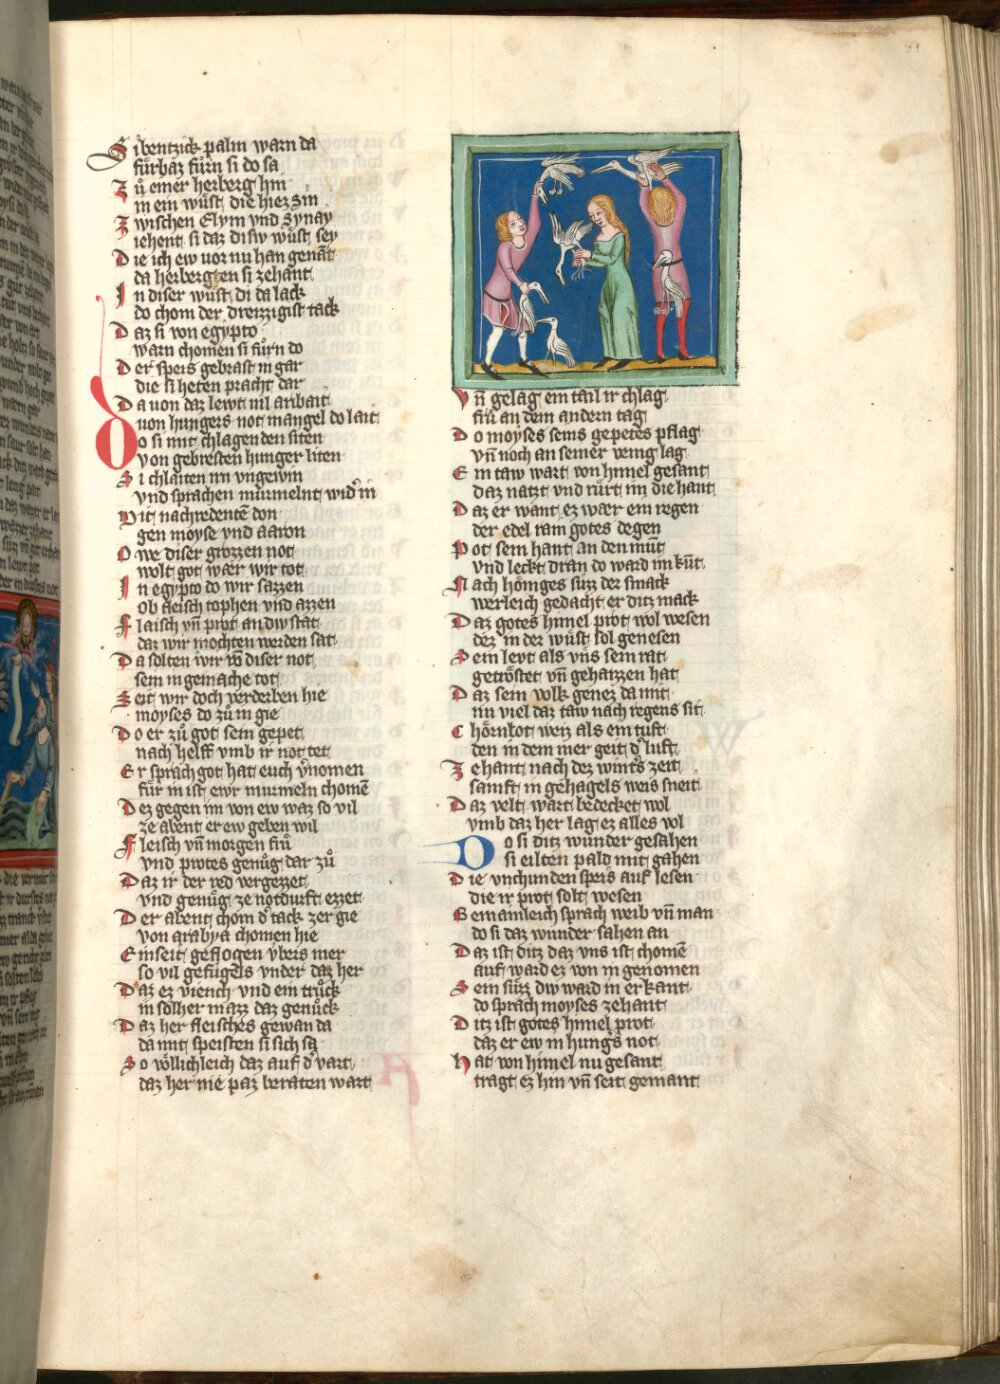 Sibentzick palm warn da
fürbaz fürn si do sa
Zů einer herberg hin
in ein wůst die hiez zin
Zwischen Elym vnd Synay
iehent si daz disiv wůst sey
Die ich ew uor nu han genāt
da herbergten si zehant
In diser wůst di da lack
do chom der dreizzigist tack
Daz si von egypto
warn chomen si fůrn do
Der speis gebrast in gar
die si heten pracht dar
Da uon daz lewt uil aribait
uon hungers not mangel do lait
Do si mit chlagenden siten
von gebresten hunger liten
Si chlaiten irn vngewin
vnd sprachen murmelnt wid'in
Mit nachredentē don
gen moyse vnd aaron
Owe diser grozzen not
wolt got wær wir tot
In egypto do wir sazzen
ob fleisch tophen vnd azzen
Flaisch vn̄ prot an diw stat
daz wir mochten werden sat
Da solten wir vō diser not
sein in gemache tot
Seit wir doch verderben hie
moyses do zů in gie
Do er zů got sein gepet
nach helff vmb ir not tet
Er sprach got hat euch v'nomen
für in ist ewr murmeln chomē
Dez gegen im von ew waz so vil
ze abent er ew geben wil
Fleisch vn̄ morgen frů
vnd protes genůg dar zů
Daz ir der red vergezzet
vnd genůg ze notdurft ezzet
Der abent chom d' tack zer gie
von arabya chomen hie
Einseit geflogen vbers mer
so vil gefůgels vnder daz her
Daz ez viench vnd ein trůck
in sölher mazz daz genůck
Daz her fleisches gewan da
da mit speisten si sich sa
So völlichleich daz auf d' vart
daz her nie paz beraten wart
Vn̄ gelag ein tail ir chlag
frů an dem andern tag
Do moyses seins gepetes pflag
vn̄ noch an seiner venig lag
Ein taw wart von himel gesant
daz natzt vnd růrt im die hant
Daz er want ez wær ein regen
der edel rain gotes degen
Pot sein hant an den mūt
vnd leckt dran do ward im kūt
Nach höniges suzz der smack
werleich gedacht er ditz mack
Daz gotes himel prot wol wesen
dez in der wůst sol genesen
Sein levt als vns sein rat
getröstet vn̄ gehaizzen hat
Daz sein volk genez da mit
nu viel daz taw nach regens sit
Chörnlot weiz als ein tuft
den in dem mer geit d' luft
Zehant nach dez wint's zeit
samft in gehagels weis sneit
Daz velt wart bedecket wol
vmb daz her lag ez alles vol
Do si ditz wunder gesahen
si eilten pald mit gahen
Die vnchunden speis auf lesen
die ir prot solt wesen
Gemainleich sprach weib vn̄ man
do si daz wunder sahen an
Daz ist ditz daz vns ist chomē
auf ward ez von in genomen
Sein sůzz diw ward in erkant
do sprach moyses zehant
Ditz ist gotes himel prot
daz er ew in hung's not
Hat von himel nu gesant
tragt ez hin vn̄ seit gemant